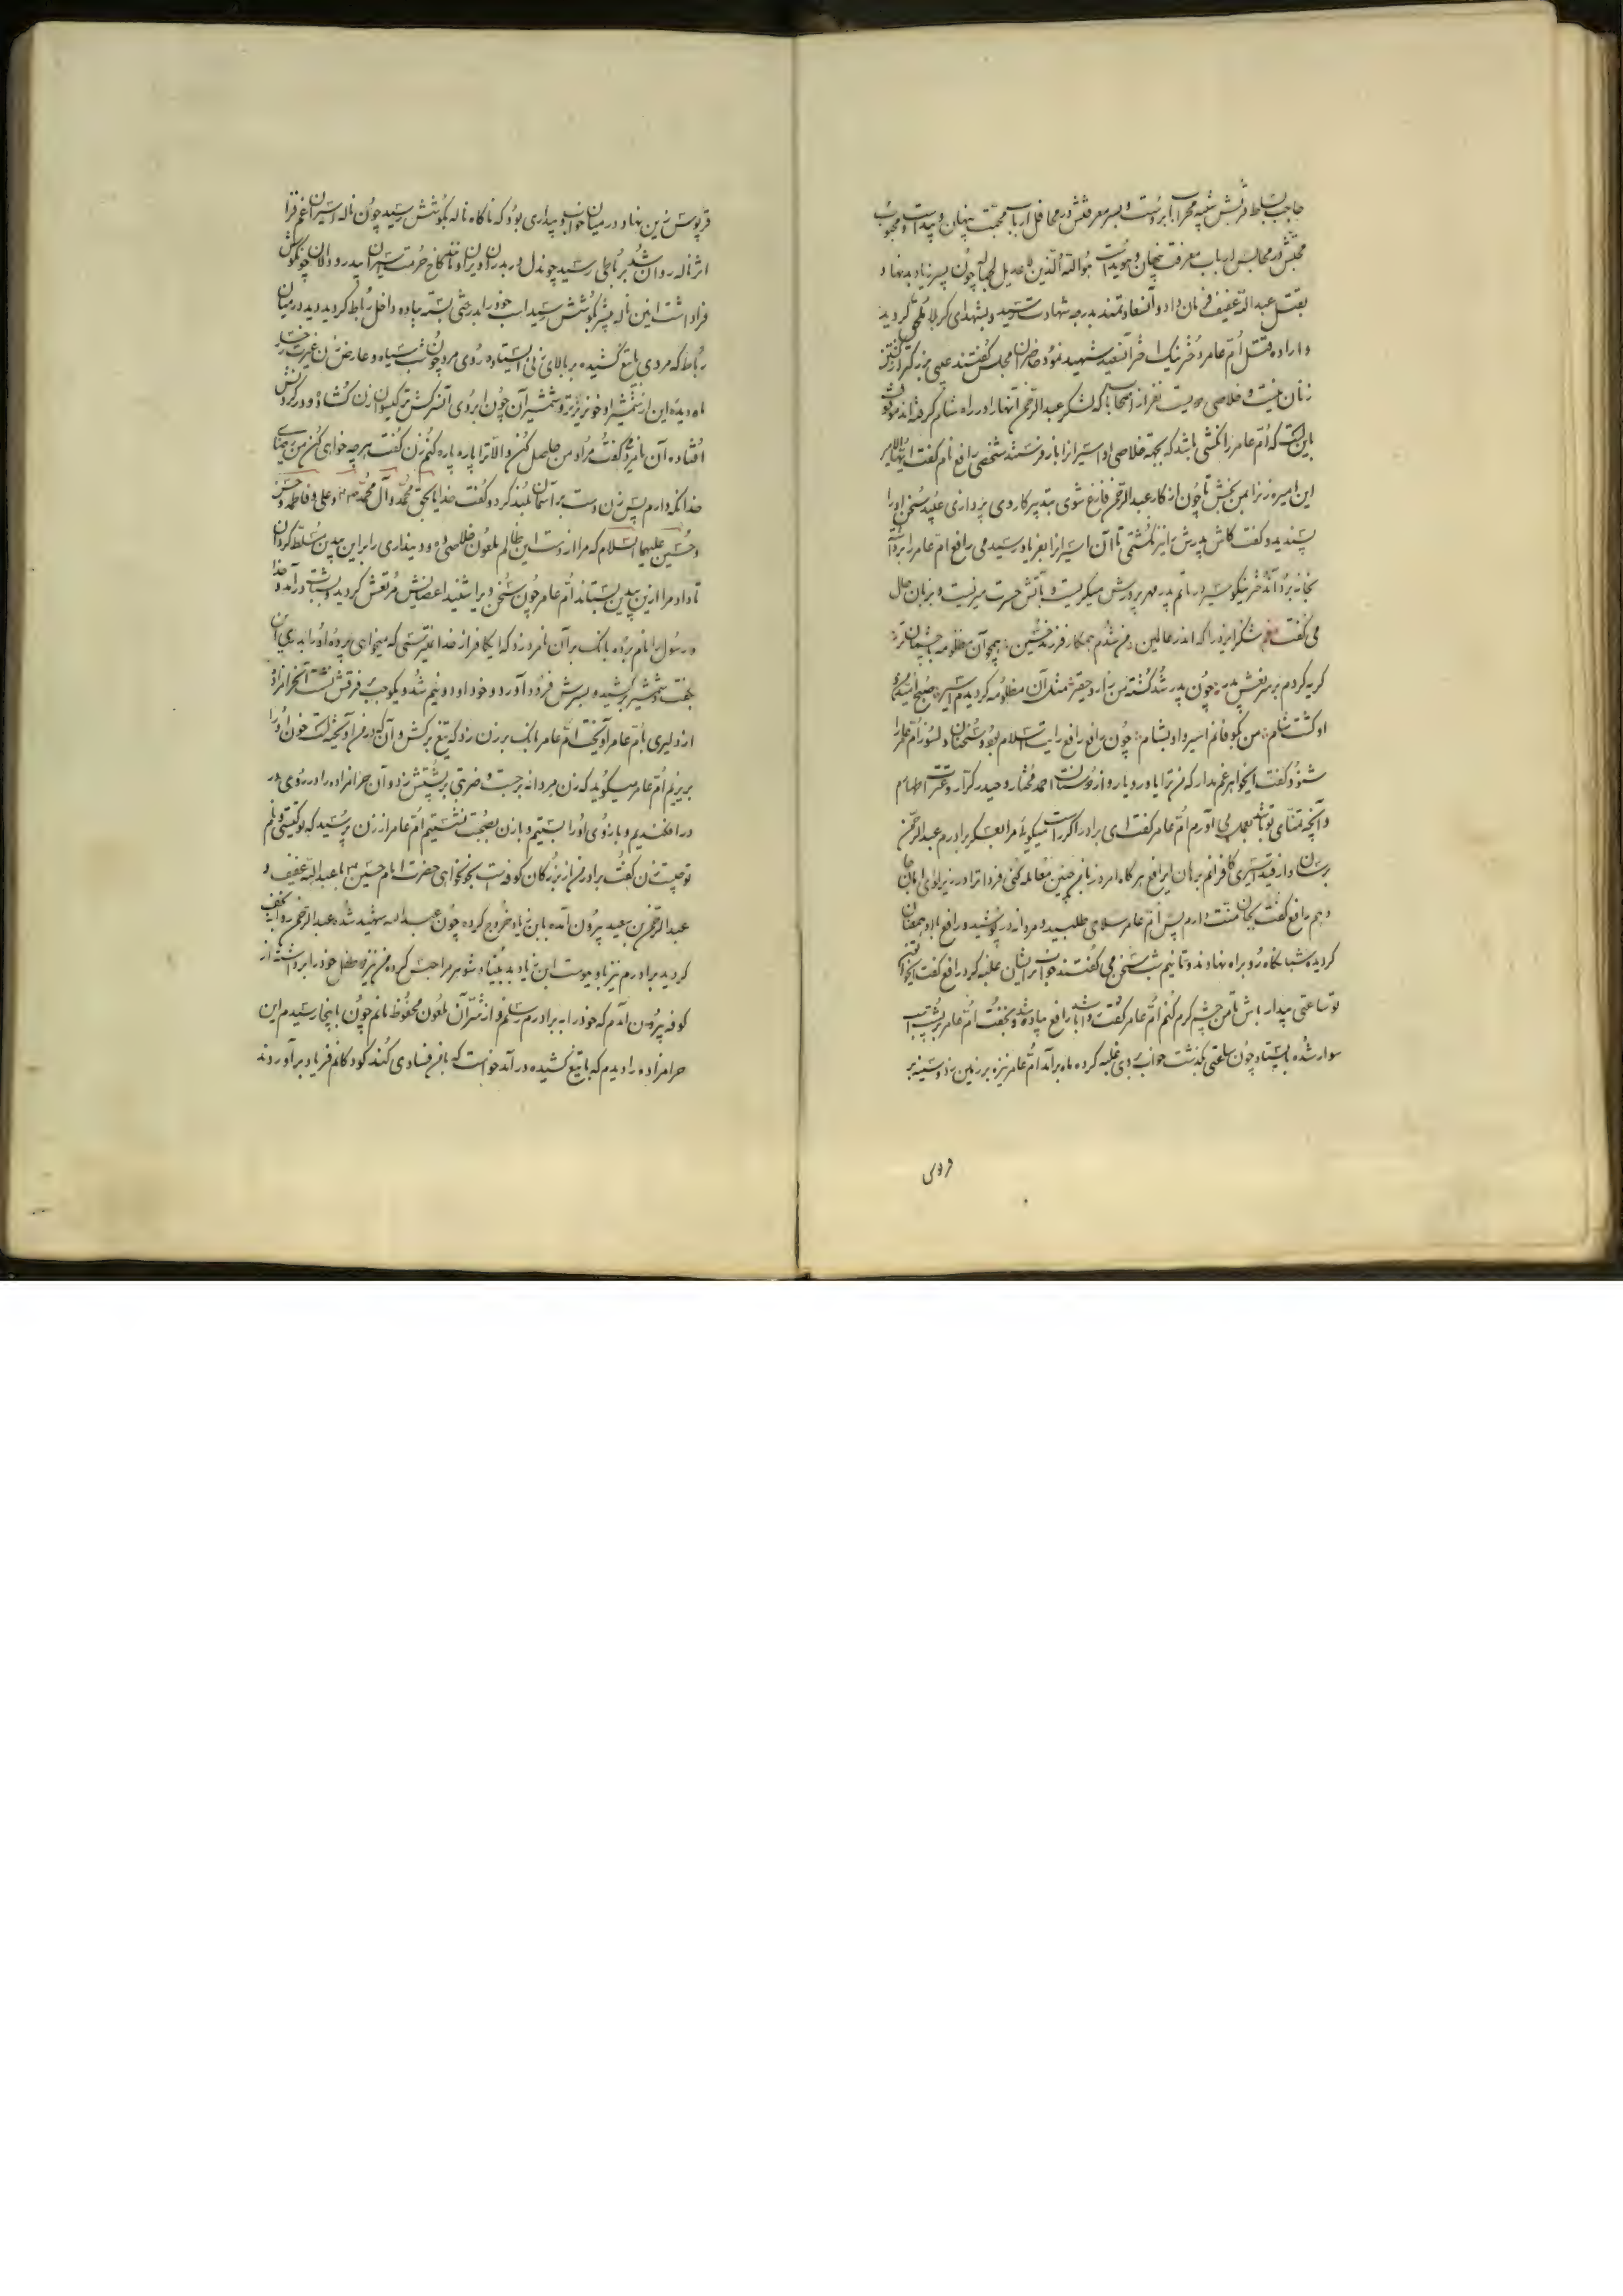 حاجب بسلط قربش شبه محراب ابروست و بسر معرفتش در محافل ارباب محبت پنهان و پیداست و محبوب
محبتش در مجالس ارباب معرفت پنهان و هویداست هو الله الذین لا عدیل لها له چون پسر زیاد بدنهاد
بقتل عبدالله عفیف فرمان داد و آن سعادتمند بدرجه شهادت رسید و بشهدای کربلا ملحق گردید
و اراده قتل ام عامر دختر نیک اختر آن سعید شهید نمود حاضران مجلس گفتند عیبی بزرگتر از کشتن
زنان نیست و خلاصی دویست نفر از اصحاب ما که لشکر عبدالرحمن آنها را در راه شام گرفته‌اند موقوف
باین است که ام عامر را نکشی باشد که بجهة خلاصی او اسیران را باز فرستند شخصی رافع نام گفت ایها الامیر
این اسیره را بمن بخش تا چون از کار عبدالرحمن فارغ شوی بتدبیر کار وی پردازی عبید سخن او را
پسندید و گفت کاش پدرش را نیز نکشتمی تا آن اسیران را بفریاد رسیدمی رافع ام عامر را برداشته
بخانه برد آن دختر نیکو سیر در ماتم پدر مهرپرورش میگریست و بآتش حسرت میزیست و بزبان حال
می گفت شکر ایزد را که اندر عالمین من شدم همکار فرزند حسین همچو آن مظلومه با چشمان تر
گریه کردم بر سر نعش پدر چون پدر شد کشته من زار و حقیر مثل آن مظلومه گردیدم اسیر
او گشت شام من بکوفه‌ام اسیر و او بشام چون رافع رافع رایت اسلام بود و سخنان دلسوز ام عامر را
شنود گفت ایخواهر غم مدار که من ترا یاور و یار و از دوستان احمد مختار و حیدر کرار و عترت اطهارم
و آنچه تمنای تو باشد بعمل می آورم ام عامر گفت ای برادر اگر راست میگوئی مرا بعسکر برادرم عبدالرحمن
برسان و از قید اسیری کافرانم برهان ای رافع هر گاه امروز با من چنین معامله کنی فردا ترا در زیر لوای امان جا
دهم رافع گفت بجان منت دارم پس ام عامر سلاحی طلبید و مردانه در پوشید و رافع با او همعنان
گردیده شبانگاه رو براه نهادند و تا نیم شب سخن می گفتند خواب بر ایشان غلبه کرد رافع گفت ایخواهر
تو ساعتی بیدار باش تا من چشم گرم کنم ام عامر گفت روا باشد رافع پیاده شد و بخفت ام عامر بر پشت اسب
سوار شده بایستاد چون ساعتی گذشت خواب بر وی غلبه کرده ماه برآمد ام عامر نیزه بر زمین زد و سینه بر
قرپوس زین نهاد در میان خواب و بیداری بود که ناگاه ناله بگوشش رسید چون ناله اسیران غم فزا
اثر ناله روان شد برباطی رسید چون دل دربدران ویران و مانند کاخ حرمت اسیران بیدر و دالان چون گوش
فرا داشت این ناله بیشتر بگوشش رسید اسب خود را بدرختی بسته پیاده داخل رباط گردید دید در میان
رباط که مردی با تیغ کشیده بر بالای زنی ایستاده روی مرد چون شب سیاه و عارض زن غیرت رخسار
ماه دیده این از شمشیر او خونریزتر و شمشیر آن چون ابروی آن سرکش تر گیسوی آن زن گشاده و در گردنش
افتاده آن نامرد گفت مراد من حاصل کن والا ترا پاره پاره کنم زن گفت هر چه خواهی کن من از خدای
خدا نگه دارم پس زن دست برآسمان بلند کرد و گفت خدایا بحق محمد و آل محمد ص و علی و فاطمه و حسن
و حسین علیهما السلام که مرا از دست این ظالم ملعون خلاصی ده و دینداری را بر این بیدین مسلط گردان
تا داد مرا ازین بیدین بستاند ام عامر چون سخن ویرا شنید اعضایش مرتعش گردید بشتاب درآمد و خدا
و رسول را نام برده بانک بر آن نامرد زد که ای کافر از خدا نمیترسی که میخواهی پرده او را بدری این
بگفت و شمشیر کشیده بسرش فرود آورد و خود او دو نیم شد و یکوجب فرقش نشست آن حرامزاده
از دلیری با ام عامر آویخت ام عامر بانک بر زن زد که تیغ برکش و آن که در من آویخته است خون او را
بریزیم ام عامر میگوید که زن مردانه برجست و ضربتی بر پشتش زد و آن حرامزاده را در روی هم
در افکندیم و بازوی او را بستیم و با زن بصحبت نشستیم ام عامر از زن پرسید که تو کیستی و نام
تو چیست زن گفت برادر من از بزرگان کوفه است بخونخواهی حضرت امام حسین ع با عبدالله عفیف و
عبدالرحمن بن سعید بیرون آمده با ابن زیاد خروج کرده چون عبدالله شهید شده عبدالرحمن روانه نجف
گردید برادرم نیز باو پیوست ابن زیاد بدبنیاد شوهر مرا حبس کرده من نیز دو طفل خود را برداشته از
کوفه بیرون آمدم که خود را به برادرم رسانم و از شر آن ملعون محفوظ مانم چون باینجا رسیدم این
حرامزاده را دیدم که با تیغ کشیده درآمد خواست که با من فسادی کند کودکانم فریاد برآوردند
قرپوس